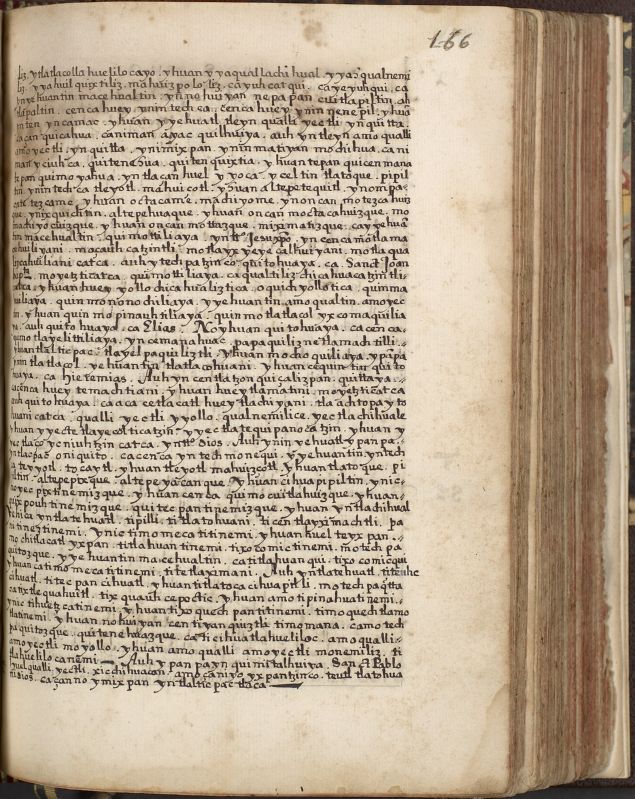 166
liz, ytlatlacolla huelilocayo. yhuan yyaqual lachihual. yyaꝗ̃ qualnemi
liz. yyahuil quix tiliz. mahuiz po lo liz. ca yuh cat qui. ca ye yuh qui. ca
yn ye huantin mace hual tin. yn ne hui yan ne pa pan cui tla pil tin. ah
tlapal tin. cenca huey ynin tech ca. cenca huey ynin ne ne pil. yhuā
yn ten yn camac. yhuan yyehuatl tleyn qualli yectli yn qui tta.
ca can quicahua. caniman ayac quilhuiya. auh yn tleyn amo qualli
amo yectli. yn quitta. ynimix pan. ynin matiyan mochihua. cani
man yciuh ca. quitenehua. quiten quixtia. yhuan tepan quicenmana
te pan quimo yahua. yn tlacan huel yyoca. y celtin tlatoque. pipil
tin. ynin tech ca tleyotl. mahuicotl. yhuan altepetequitl. ynompa
tezcame. yhuan octacame. machiyome. ynoncan mo tez ca huiz
que. ynixquich tin. altepehuaque. yhuan oncan moctacahuizque. mo
machiyo cuizque. yhuan oncan mottizque. mixamatizque. ca yehuā
tin macehualtin. quimottiliaya. yn tto Jesuxpo. yn cenca motlama
cehuiliyani. mocauhcatzintli. motlayyyeye calhuiyani. motlaqua
cahuiliani catca. auh y tech patzinco quitohuaya. ca Sanct Joan
moyetzticatca. quimottiliaya. ca qualtiliz chicahuacatzintli
catca. yhuan huey yollo chicahualiztica. oquichyollotica. quimma
huiliaya. quin mononochiliaya. yyehuantin. amo qualtin. amo yec
tin. yhuan quin mopinauhtiliaya. quin mo tlatlacol yxcomaquilia
ya. auh quitohuaya. ca Elias. No yhuan quitohuaya. ca cenca
quimotlayelittiliaya. yn cemanahuac. papaquiliznetlamachtilli.
yhuan tlalticpac. tlayelpaquiliztli. yhuan mochoquiliaya. ypāpa
ynin tlatlacol. yehuantin tlatlacohuani. yhuan cequintin quito
huaya. ca hieremias. Auh yn cen tlatzonquiçalizpan. quittaya.
ca cenca huey temachtiani. yhuan huey tlamatini. moyetzticatca
auh quitohuaya. ca aca ce tlacatl huey tlachiyani. tlaachtopayto
huani catca. qualli yectli yyollo. qualnemilice. yectlachihuale
yhuan yyecte tlayecolticatzin. yyectlatequipanocatzin. yhuan y
yectlaço ycniuhtzin catca. yn tto Dios. Auh ynin yehuatl ypan pa
yntlacpac. oniquito. ca cenca yntech monequi. yn yehuantin yntech
ca teyyotl. tocaytl. yhuan tleyotl mahuizçotl. yhuan tlatoque. pi
piltin. altepepixque. altepeyacanque. yhuan cihuapipiltin. ynic
noyec pixtinemizque. yhuan cenca quimocuitlahuizque. yhuan
quixpouhtinemizque. quitecpantinemizque. yhuan yn tlachihual
yehica yntla tehuatl. tipilli. titlatohuani. ticentlayximachtli. pa
tinentinemi. ynic timomecatitinemi. yhuan huel teyxpan
mochitlacatl yxpan. titlahuantinemi. tixocomictinemi. motech pa
quitozque. yyehuantin macehualtin. ca titlahuanqui. tixocomicqui
yhuan catimomecatitinemi. titetlaximani. Auh yn tla tehuatl, titeuhc
cihuatl. titecpancihuatl. yhuan titlatocacihuapilli. motech paq̄tta
ca tixtlequahuitl. tixquauhcepoctic. yhuan amo tipinahuatinemi.
ynic tihuetzcatinemi. yhuan tixoquechpantitinemi. timoquechtlamo
tlatinemi. yhuan nohuiyan centiyanquiztli timomana. camo tech
paquitozque. quitenehuazque. ca ticihuatlahueliloc. amo qualli
amo yectli moyollo. yhuan amo qualli amo yectli monemiliz. ti
tlahuelilocanemi — Auh ypan payn quimitalhuiya. San ct Pablo
huel qualli. yectli. xicchihuacan. amo çaniyo yxpantzinco. teutl tlatohua
ni Dios. ca çanno ymixpan yn tlalticpactlaca —